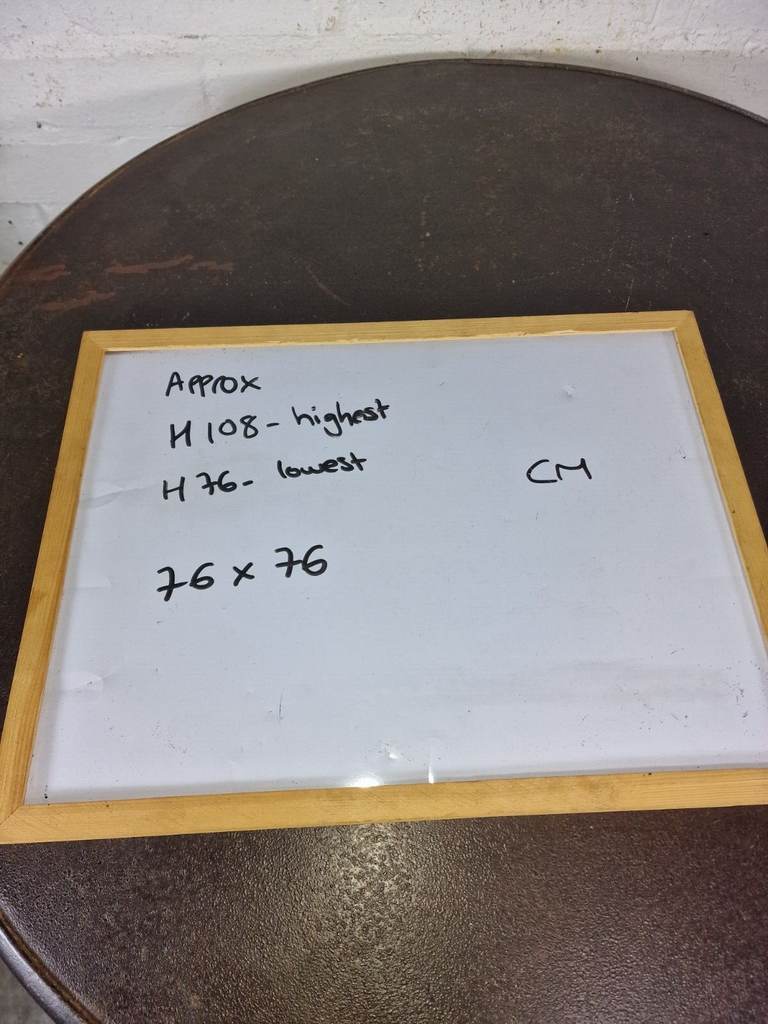 Approx
H 108 - highest
H 76 - lowest
CM
76 x 76